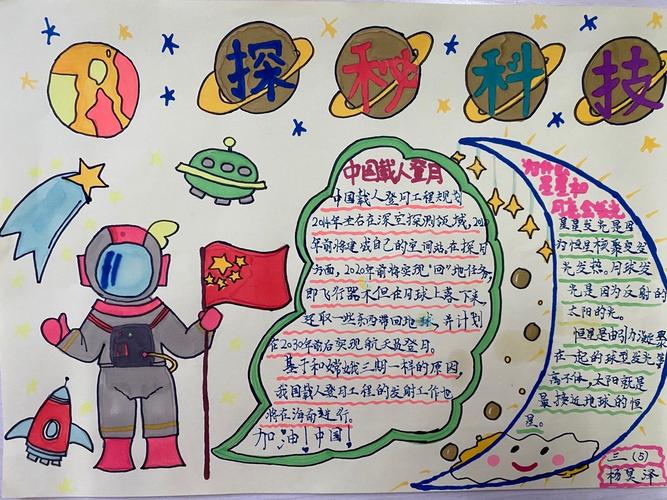 探秘科技
中国载人登月
中国载人登月工程规划
2014年左右在深空探测领域,2020
年前将建成自己的空间站,在探月
方面,2020年前将实现“回”地任务,
即飞行器不但在月球上落下来,
还取一些东西带回地球,并计划
在2030年前后实现航天员登月。
基于和嫦娥三期一样的原因,
我国载人登月工程的发射工作也
将在海南进行。
加油!中国!
为什么
星星和
月亮会发光
星星发光是因
为恒星核聚变
光发热。月球发
光是因为反射的
太阳的光。
恒星是由引力凝聚
在一起的球型发光等
离子体,太阳就是
最接近地球的恒
星。
三(5)
杨昊泽